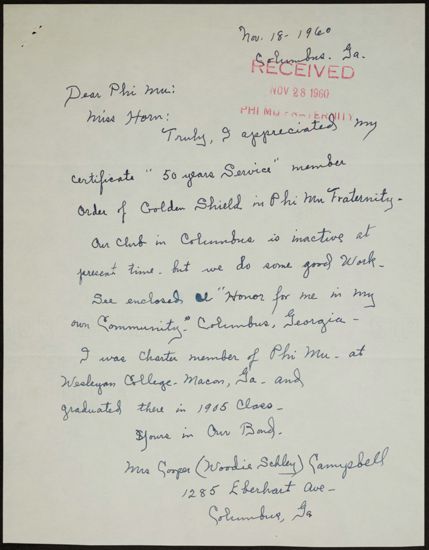 Nov. 18-1960
Columbus. Ga.
RECEIVED
NOV 28 1960
PHI MU FRATERNITY
Dear Phi Mu:
Miss Horn:
Truly, I appreciated my
certificate "50 years Service" member
Order of Golden Shield in Phi Mu Fraternity-
Our Club in Columbus is inactive at
present time. but we do some good Work-
See enclosed "Honor for me in my
own Community." Columbus, Georgia-
I was charter member of Phi Mu- at
Wesleyan College- Macon, Ga- and
graduated there in 1905 Class-
Yours in Our Bond.
Mrs Cooper (Woodie Schley) Campbell
1285 Eberhart Ave-
Columbus, Ga